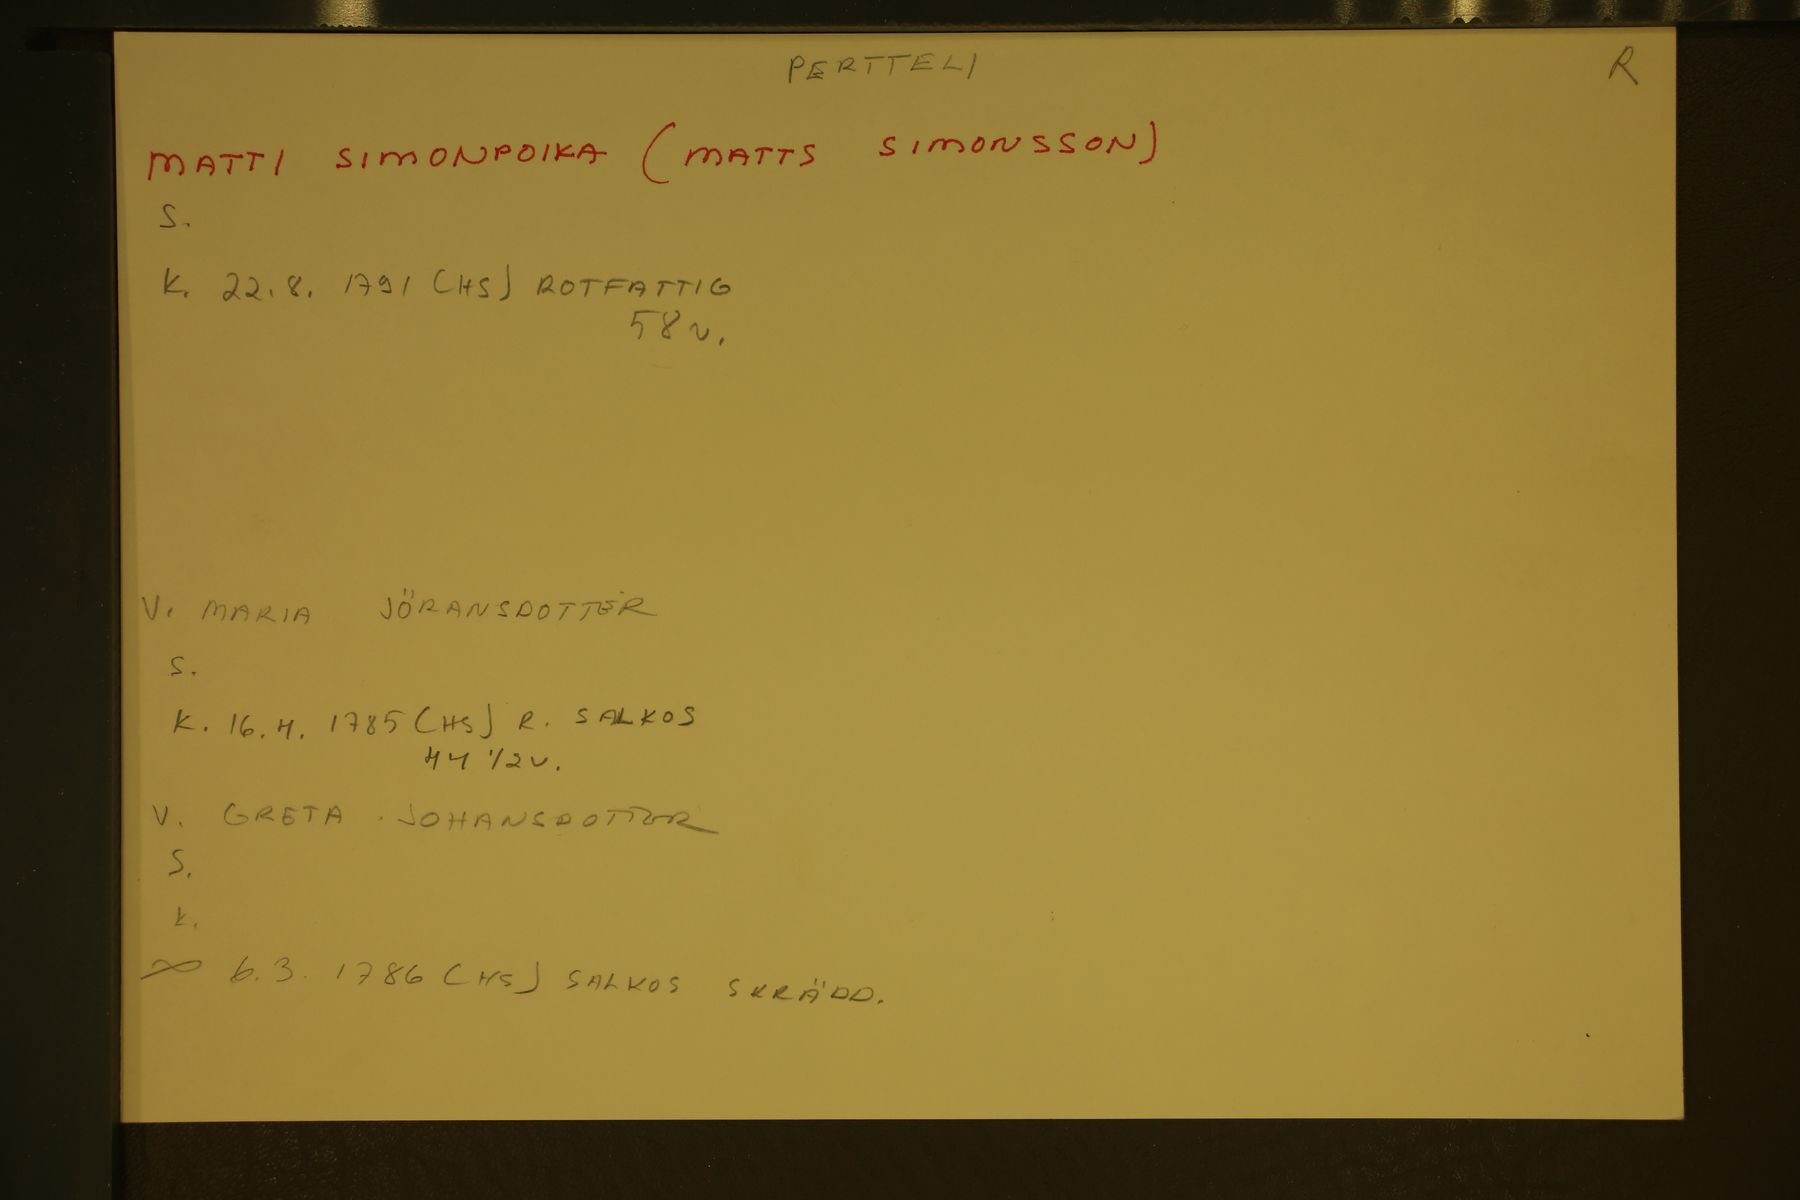 PERTTELI R
MATTI SIMONPOIKA (MATTS SIMONSSON)
S.
K. 22.8. 1791 (HS) ROTFATTIG
58 v.
V. MARIA JÖRANSDOTTER
S.
K. 16.4. 1785 (HS) R. SALKOS
44 1/2 v.
V. GRETA JOHANSDOTTER
S.
K.
∞ 6.3. 1786 (HS) SALKOS SKRÄDD.